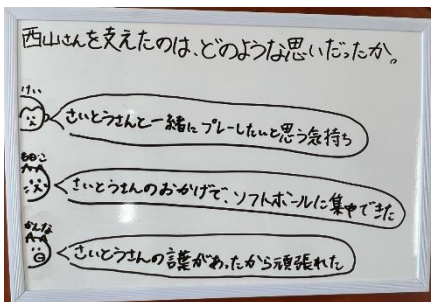 西山さんを支えたのは、どのような思いだったか。
けい
さいとうさんと一緒にプレーしたいと思う気持ち
さいとうさんのおかげで、ソフトボールに集中できた
かんな
さいとうさんの言葉があったから頑張れた